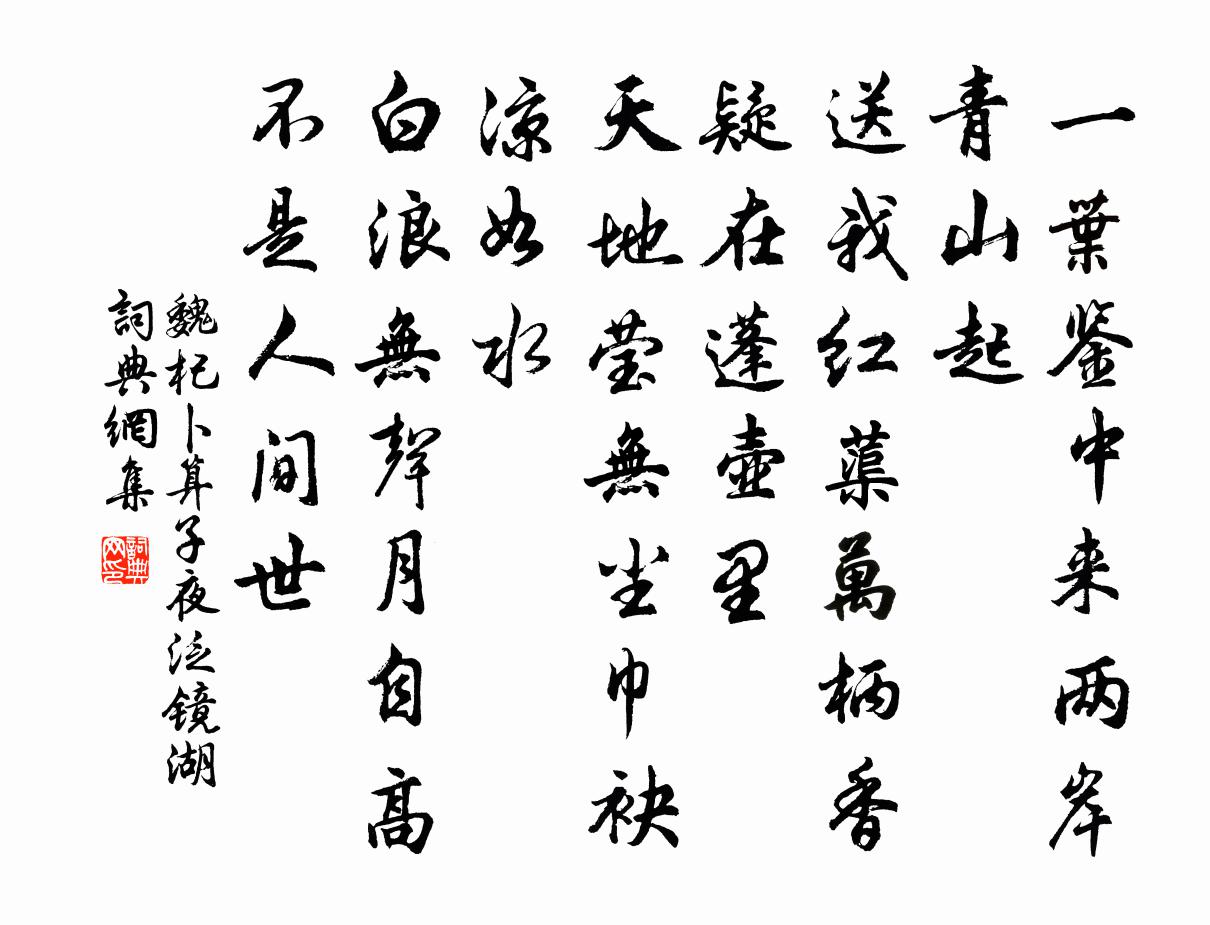 一葉鉴中来两岸
青山起
送我红蕖萬柄香
疑在蓬壷里
天地莹無尘巾袂
凉如水
白浪無聲月自高
不是人间世
魏杞卜算子夜泛镜湖
詞典網集
詞典网印